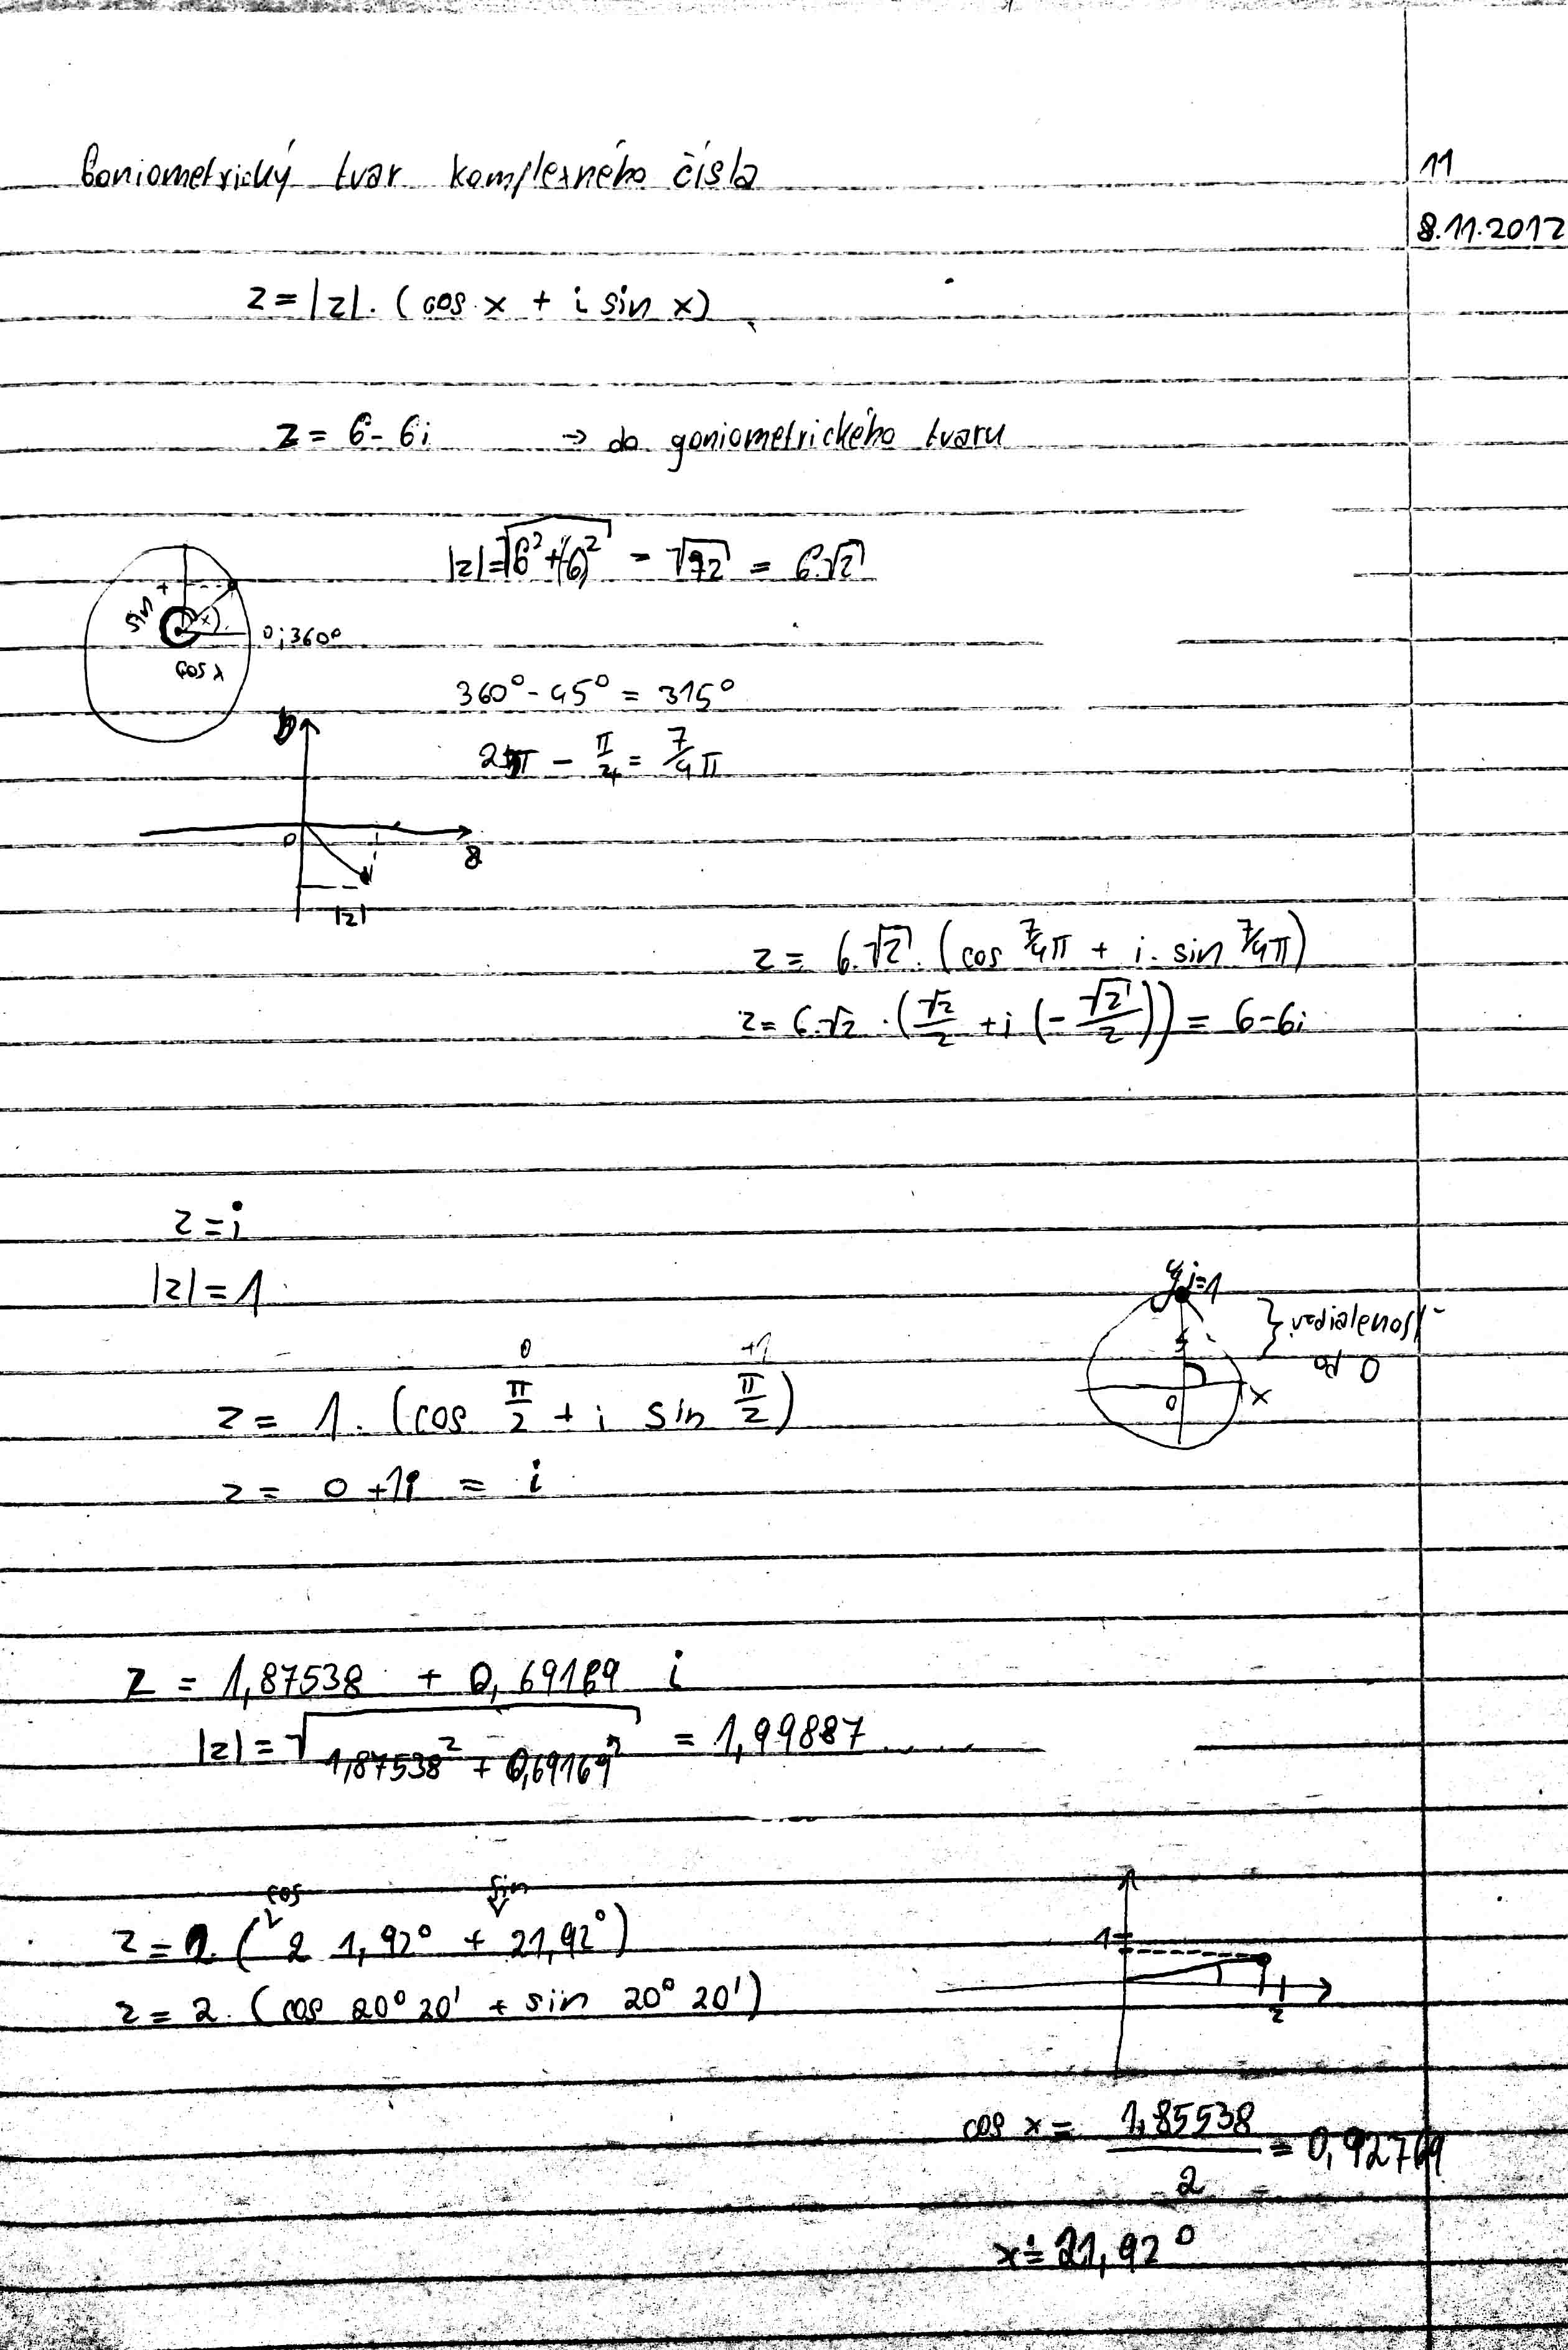 Goniometrický tvar komplexného čísla
11
8.11.2012
z = |z| . (cos x + i sin x)
z = 6 - 6i → do goniometrického tvaru
|z| = √6² + (-6)² = √72 = 6.√2
sin x
x
0;360°
cos x
360° - 45° = 315°
2π - π/4 = 7/4 π
b
0
a
|z|
z = 6.√2 . (cos 7/4π + i . sin 7/4π)
z = 6.√2 . (√2/2 + i (-√2/2)) = 6-6i
z = i
|z| = 1
y i=1
} vzdialenosť
od 0
0 x
0 +1
z = 1 . (cos π/2 + i sin π/2)
z = 0 + 1i = i
z = 1,87538 + 0,69169 i
|z| = √1,87538² + 0,69169² = 1,99887.....
cos sin
z = 2. (21,92° + 21,92°)
z = 2. (cos 20° 20' + sin 20° 20')
1
2
cos x = 1,85538/2 = 0,92769
x ≐ 21,92°